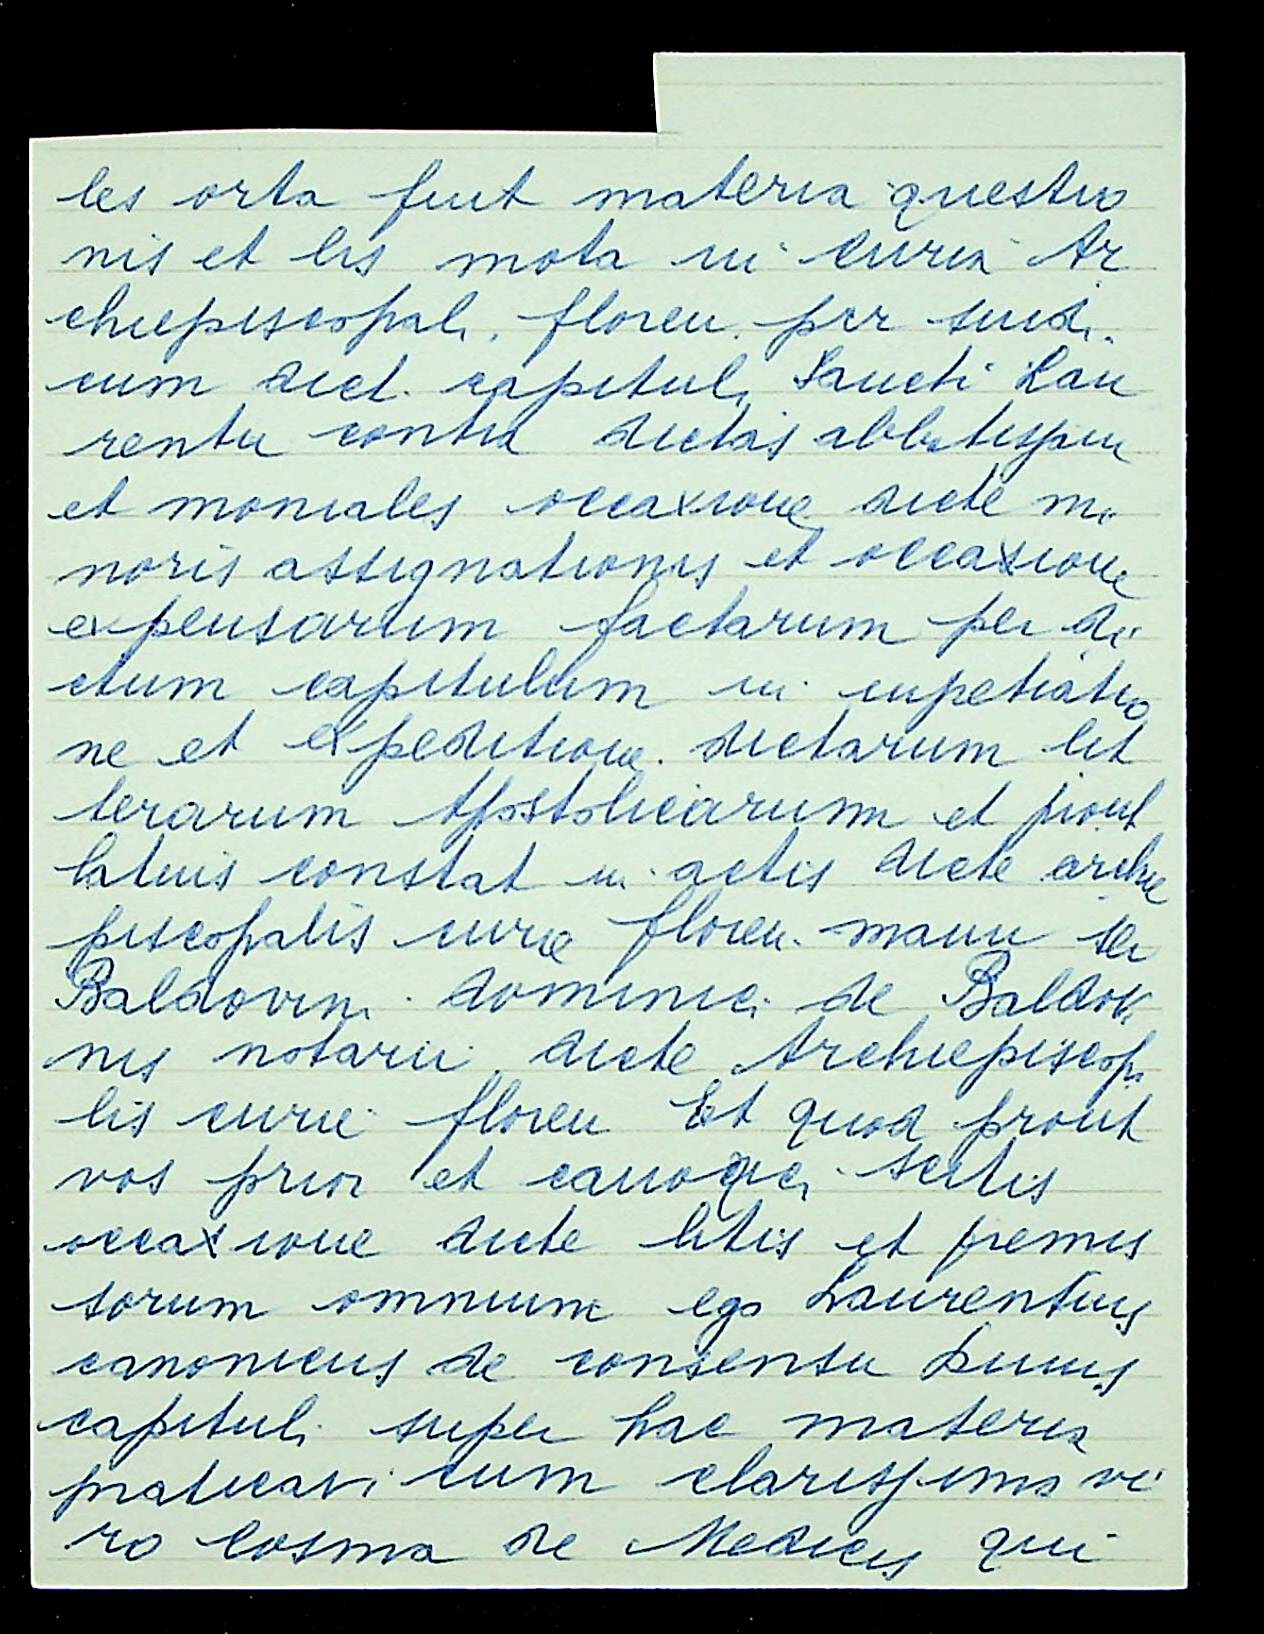 les orta fuit materia questio
nis et lis mota in curia Ar
chiepiscopali. floren. per sindi.
cum dict. capituli Sancti Lau
rentii contra dictas abbatissam
et moniales occaxione dicte mi
noris assignationis et occaxione
expensarum factarum per di
ctum capitulum in impetratio
ne et expeditione. dictarum lit
terarum Apostolicarum et prout
latius constat in actis dicte archie
piscopalis curie floren. manu ser
Baldovini. dominici de Baldovi
nis notarii dicte Archiepiscopa
lis curie floren Et quod prout
vos prior et canonici scitis
occaxione dicte litis et premis
sorum omnium ego Laurentius
canonicus de consensu huius
capituli super hac materia
praticavi cum clarissimo vi
ro Cosma de Medicis qui